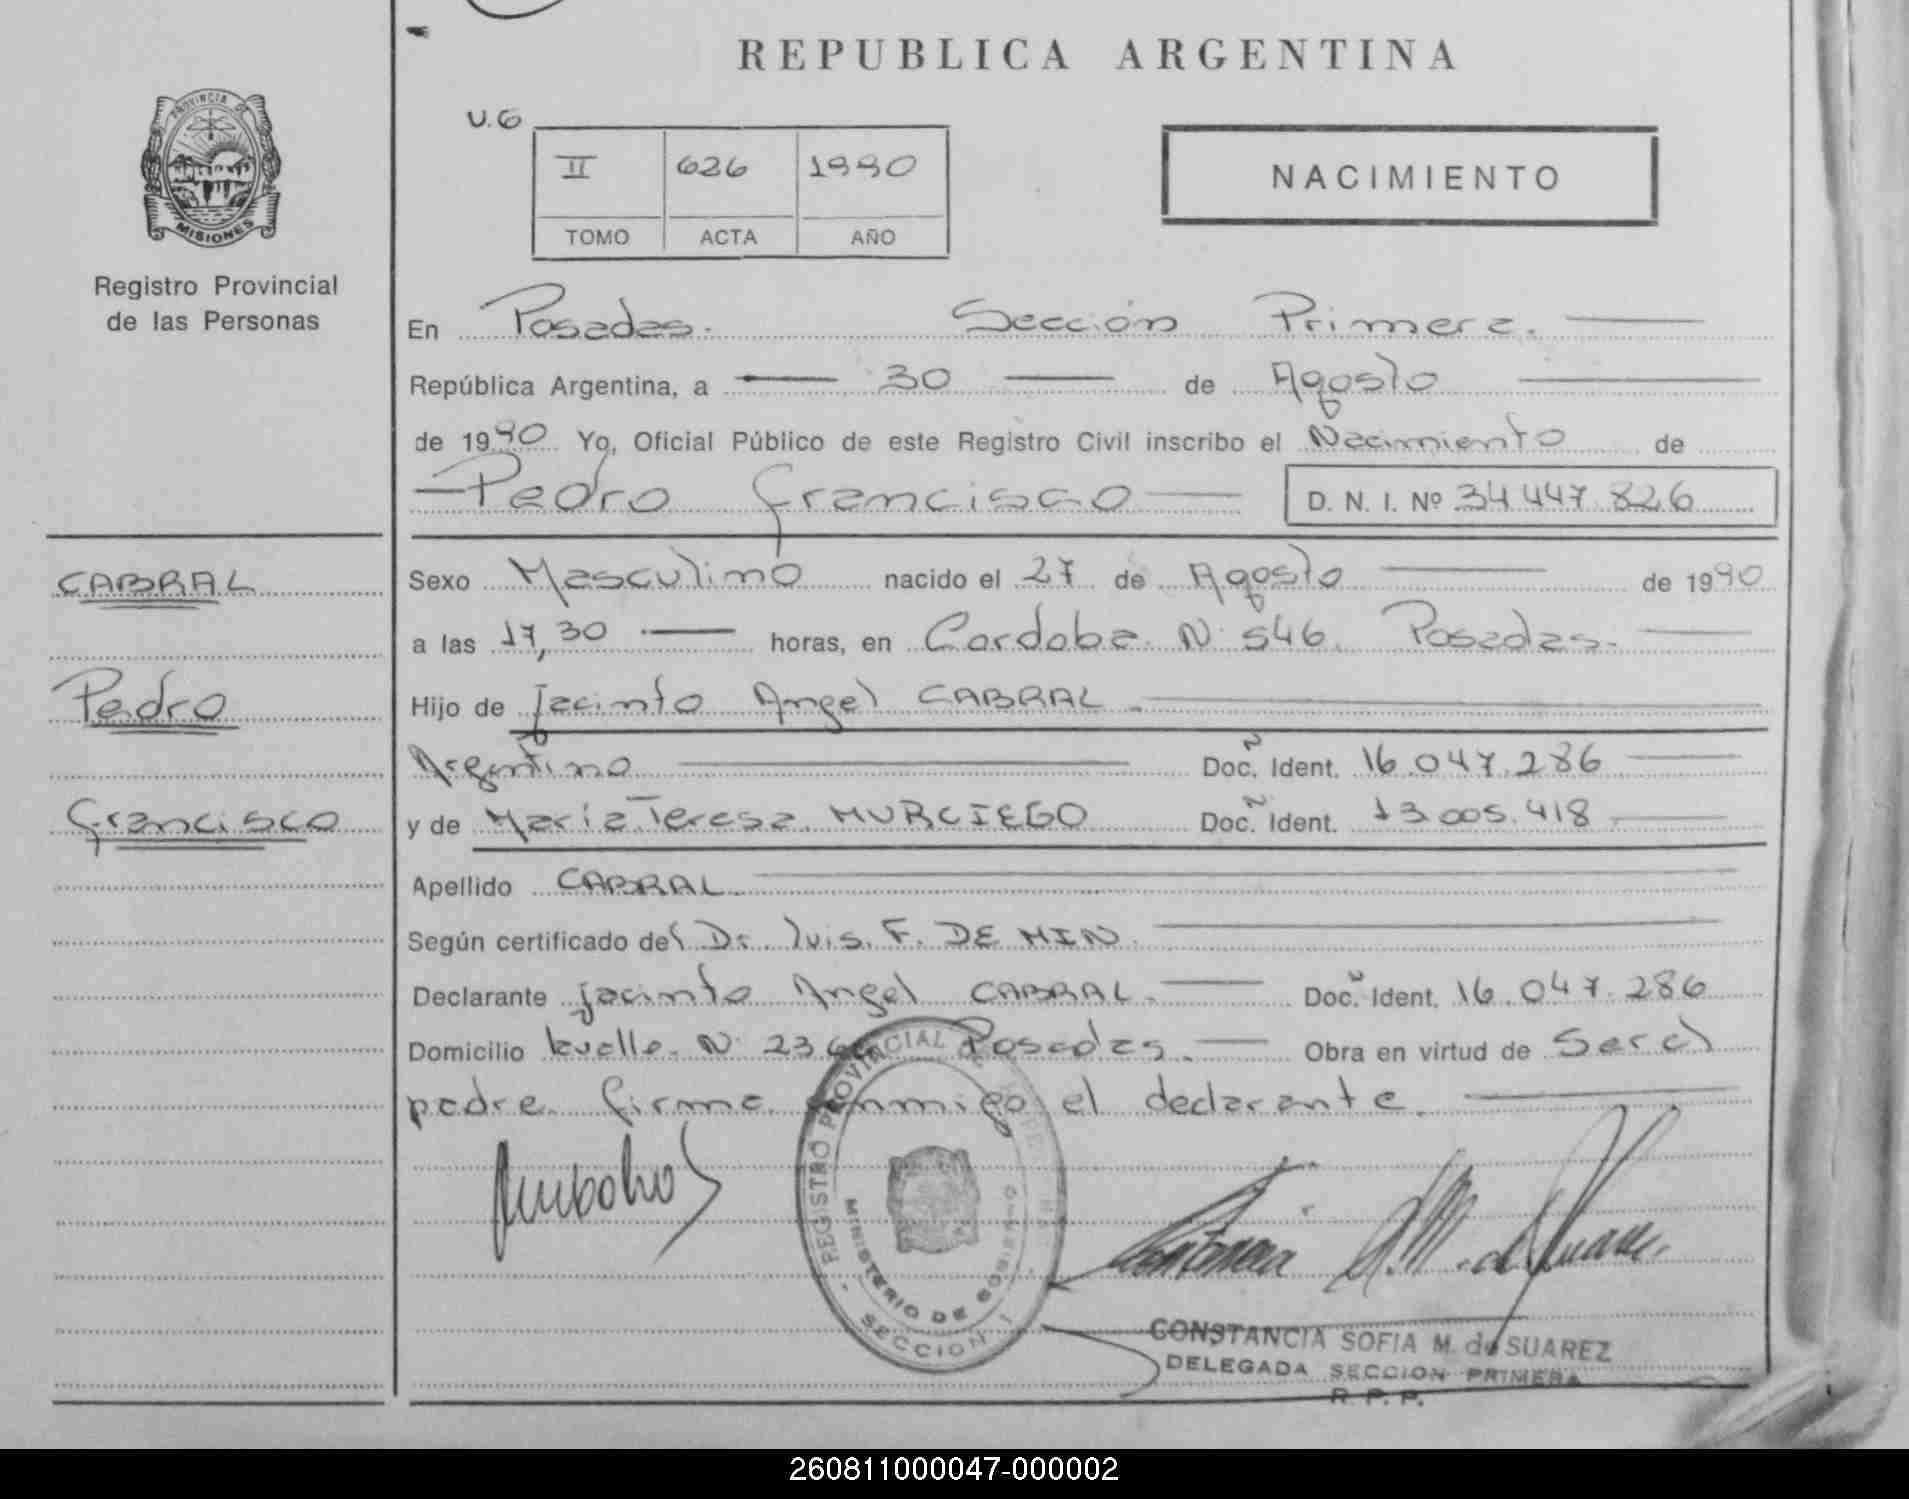 REPUBLICA ARGENTINA
U.6
II 626 1990
TOMO ACTA AÑO
NACIMIENTO
PROVINCIA DE
MISIONES
Registro Provincial
de las Personas
CABRAL
Pedro
Francisco
En Posadas. Sección Primera.
República Argentina, a 30 de Agosto
de 1990 Yo, Oficial Público de este Registro Civil inscribo el Nacimiento de
Pedro Francisco D. N. I. Nº 34 447 826
Sexo Masculino nacido el 27 de Agosto de 1990
a las 17,30 horas, en Cordoba. N. 546. Posadas.
Hijo de Jacinto Angel CABRAL.
Argentino Doc. Ident. 16.047.286
y de María Teresa MURCIEGO Doc. Ident. 13.005.418
Apellido CABRAL.
Según certificado del Dr. Luis. F. DE MIN.
Declarante Jacinto Angel CABRAL. Doc. Ident. 16.047.286
Domicilio N. Posadas. Obra en virtud de Ser el
padre. firma conmigo el declarante.
REGISTRO PROVINCIAL DE
MINISTERIO DE GOBIERNO
SECCION 1
CONSTANCIA SOFIA M. de SUAREZ
DELEGADA SECCION PRIMERA
R. P. P.
260811000047-000002